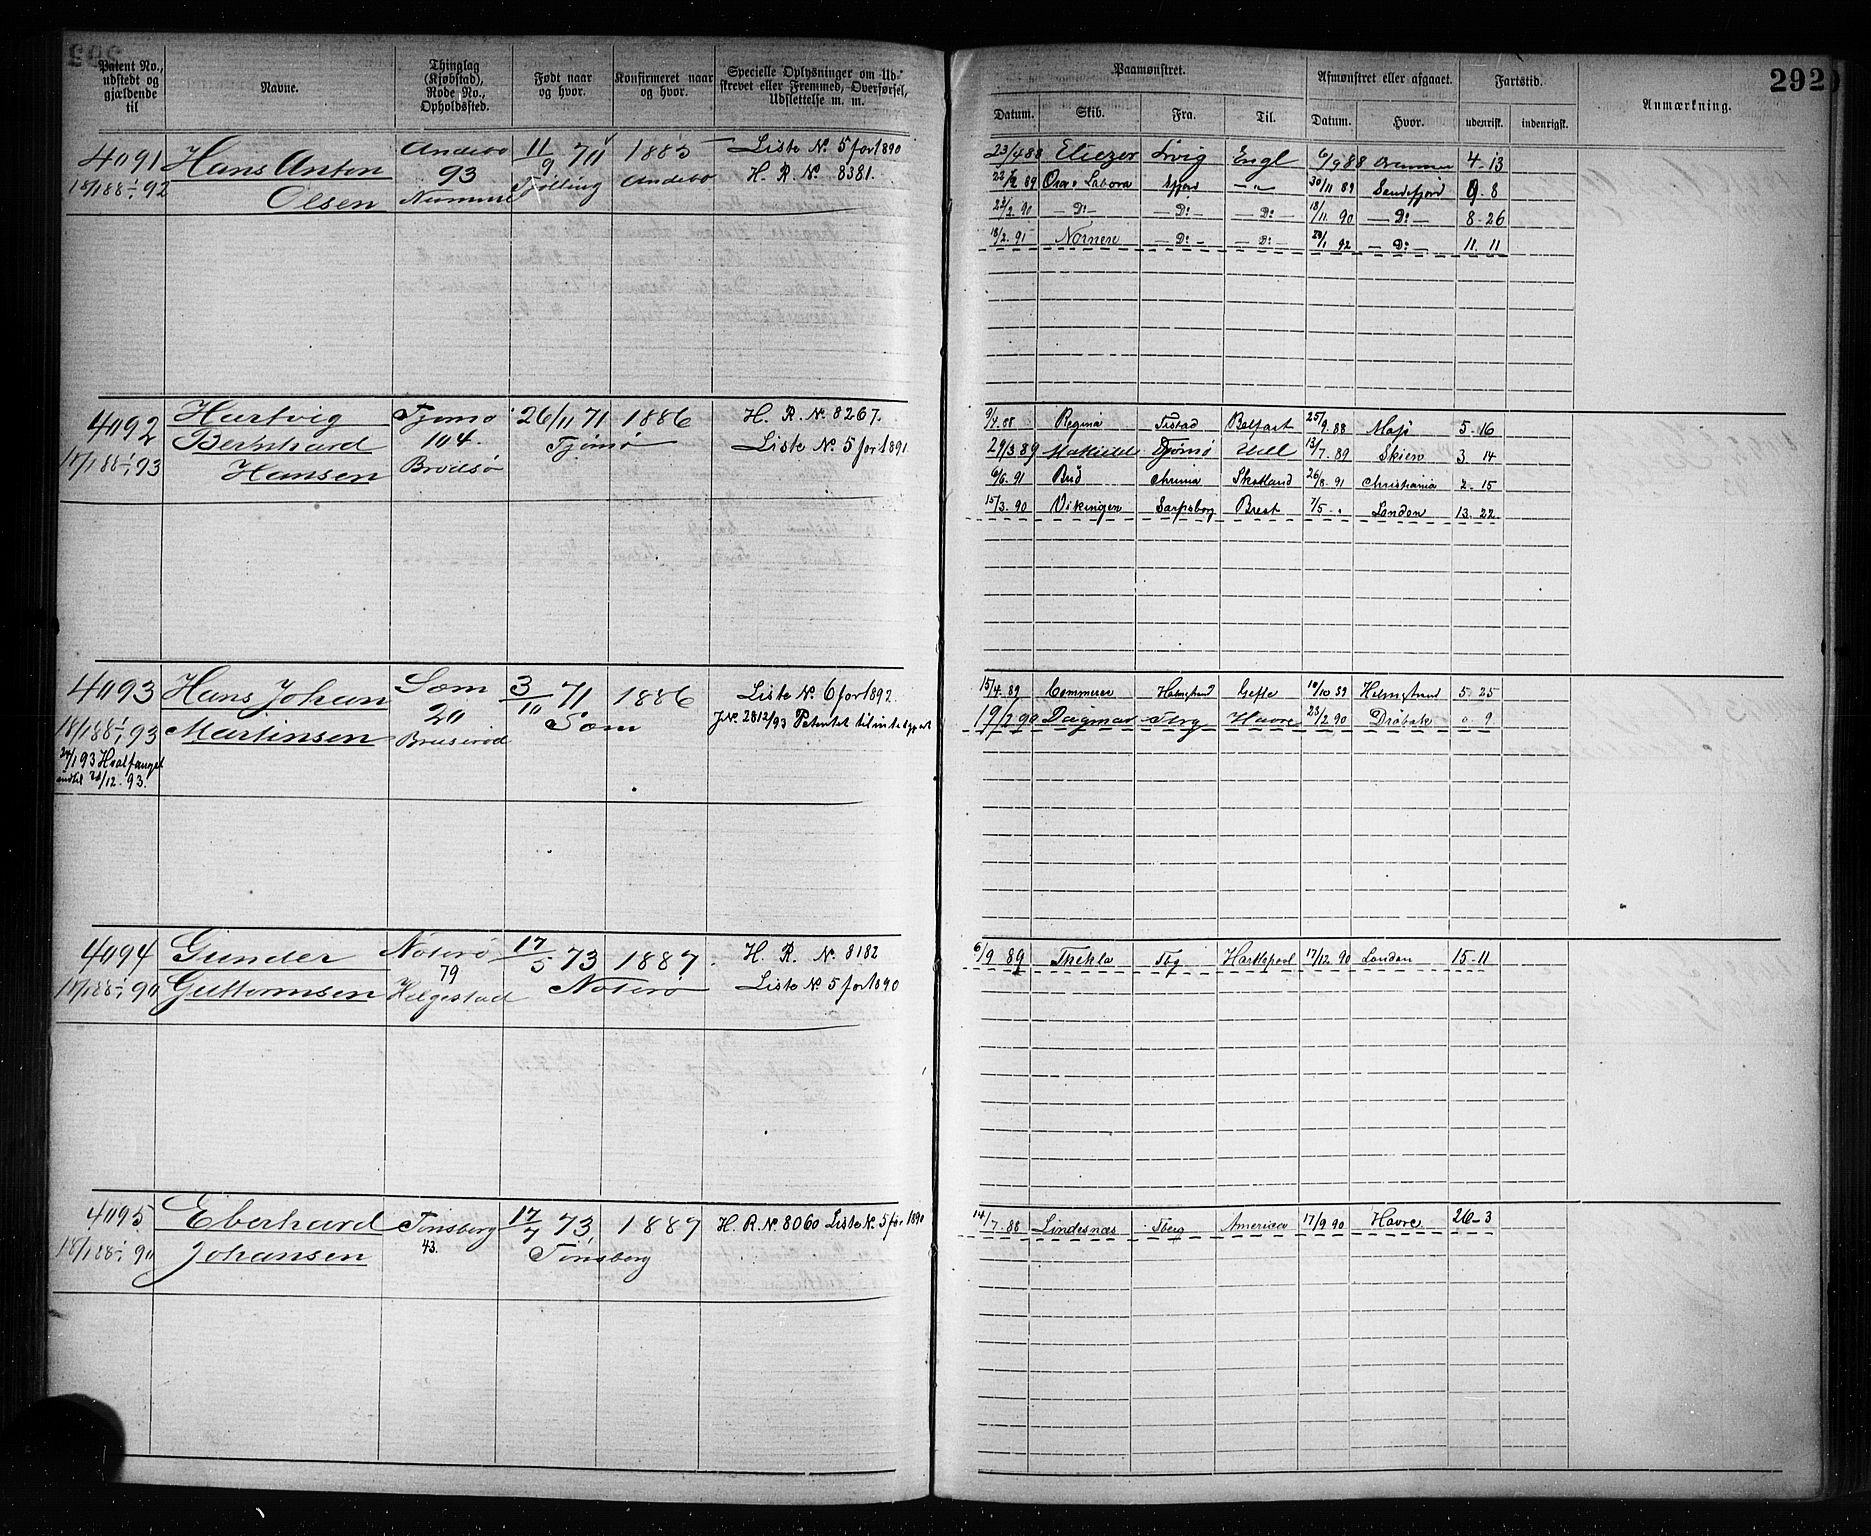 292
Patent No., udstedt og gjældende til
Navne.
Thinglag (Kjøbstad), Rode No., Opholdssted.
Født naar og hvor.
Konfirmeret naar og hvor.
Specielle Oplysninger om Udskrevet eller Fremmed, Overførsel, Udslettelse m. m.
Paamønstret.
Afmønstret eller afgaaet.
Fartstid.
Anmærkning.
Datum. Skib. Fra. Til. Datum. Hvor. udenrigsk. indenrigsk.
4091 Hans Anton Andebo 11/9 70 1885 Liste No. 5 for 1890
18/1 88-1/1 92 Olsen 93 Tjølling Andebo H. R. No. 8381.
23/4 88 Eliezer Lrvig Engl 6/9 88 4-13
89 Ora & Labora Sfjord -"- 30/11 89 Sandefjord 9-8
22/2 90 -Do- -Do- -Do- 18/11 90 -Do- 8-26
18/2 91 Nornen -Do- -Do- 92 -Do- 11. 11
4092 Hartvig Tjømø 26/11 71 1886 H. R. No. 8267.
Bernhard 104. Tjømø Liste No. 5 for 1891
18/1 88-1/1 93 Hansen
9/4 88 Regina Belfast 25/9 88 5-16
29/3 89 Mathilde Tjømø Hull 13/7 89 Skien 3 14
6/6 91 Bud Chrnia Skotland 26/8 91 Christiania 2-15
15/3 90 Vikingen Sarpsborg Brest 7/5 " London 13. 22
4093 Hans Johan Sæm 3/10 71 1886 Liste No. 6 for 1892.
18/1 88-1/1 93 Martinsen 20 Sæm JNo. 2812/93
24/1 93 Hvalfanget
indtil 93.
15/4 89 Commerce Holmstrand Gefle 19/10 89 Holmstrand 5 25
19/2 90 Dagmar Tbrg Havre 23/2 90 Drøbak 0 9
4094 Gunder Nøterø 17/5 73 1887. H. R. No. 8182
18/1 88-1/1 90 Guttormsen 79 Helgestad Nøterø Liste No. 5 for 1890
6/9 89 Thekla Tbg Hartlepool 17/12 90 London 15-11
4095 Eberhard Tønsberg 17/7 73 1887 H. R. No. 8060 Liste No. 5 for 1890
18/1 88-1/1 90 Johansen 43. Tønsberg
14/7 88 Lindesnæs Tberg America 17/9 90 Havre 26-3